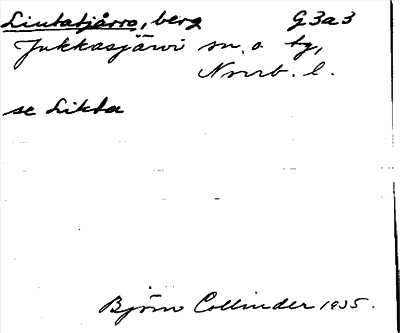 Liutatjårro, berg G3a3
Jukkasjärvi sn. o tg,
Norrb. l.
se Likta
Björn Collinder 1935.